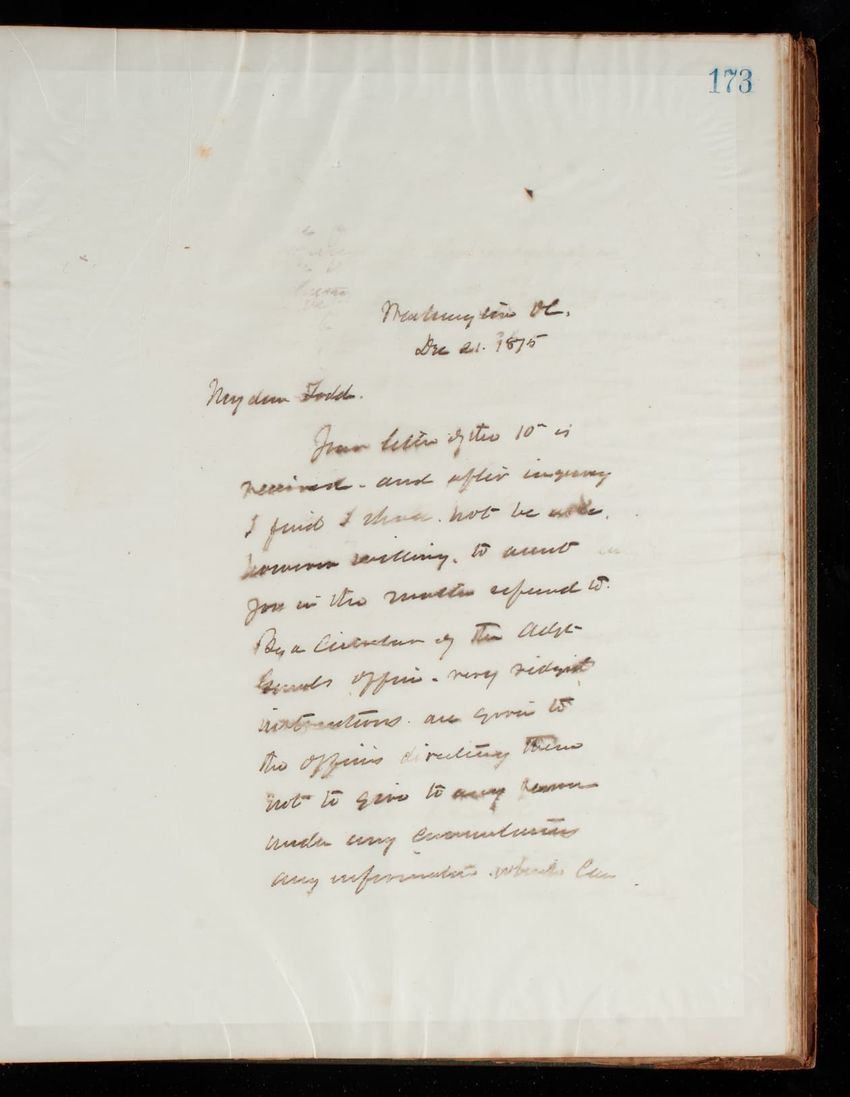 173
Washington DC.
Dec 21. 1875
My dear Todd.
Your letter of the 10th is
received - and after inquiry
I find I shall not be able,
however willing, to assist
you in the matter referred to.
By a Circular of the Adjt
Genrls office - very ridgid
instructions are given to
the officers directing them
not to give to any person
under any circumstances
any information which can